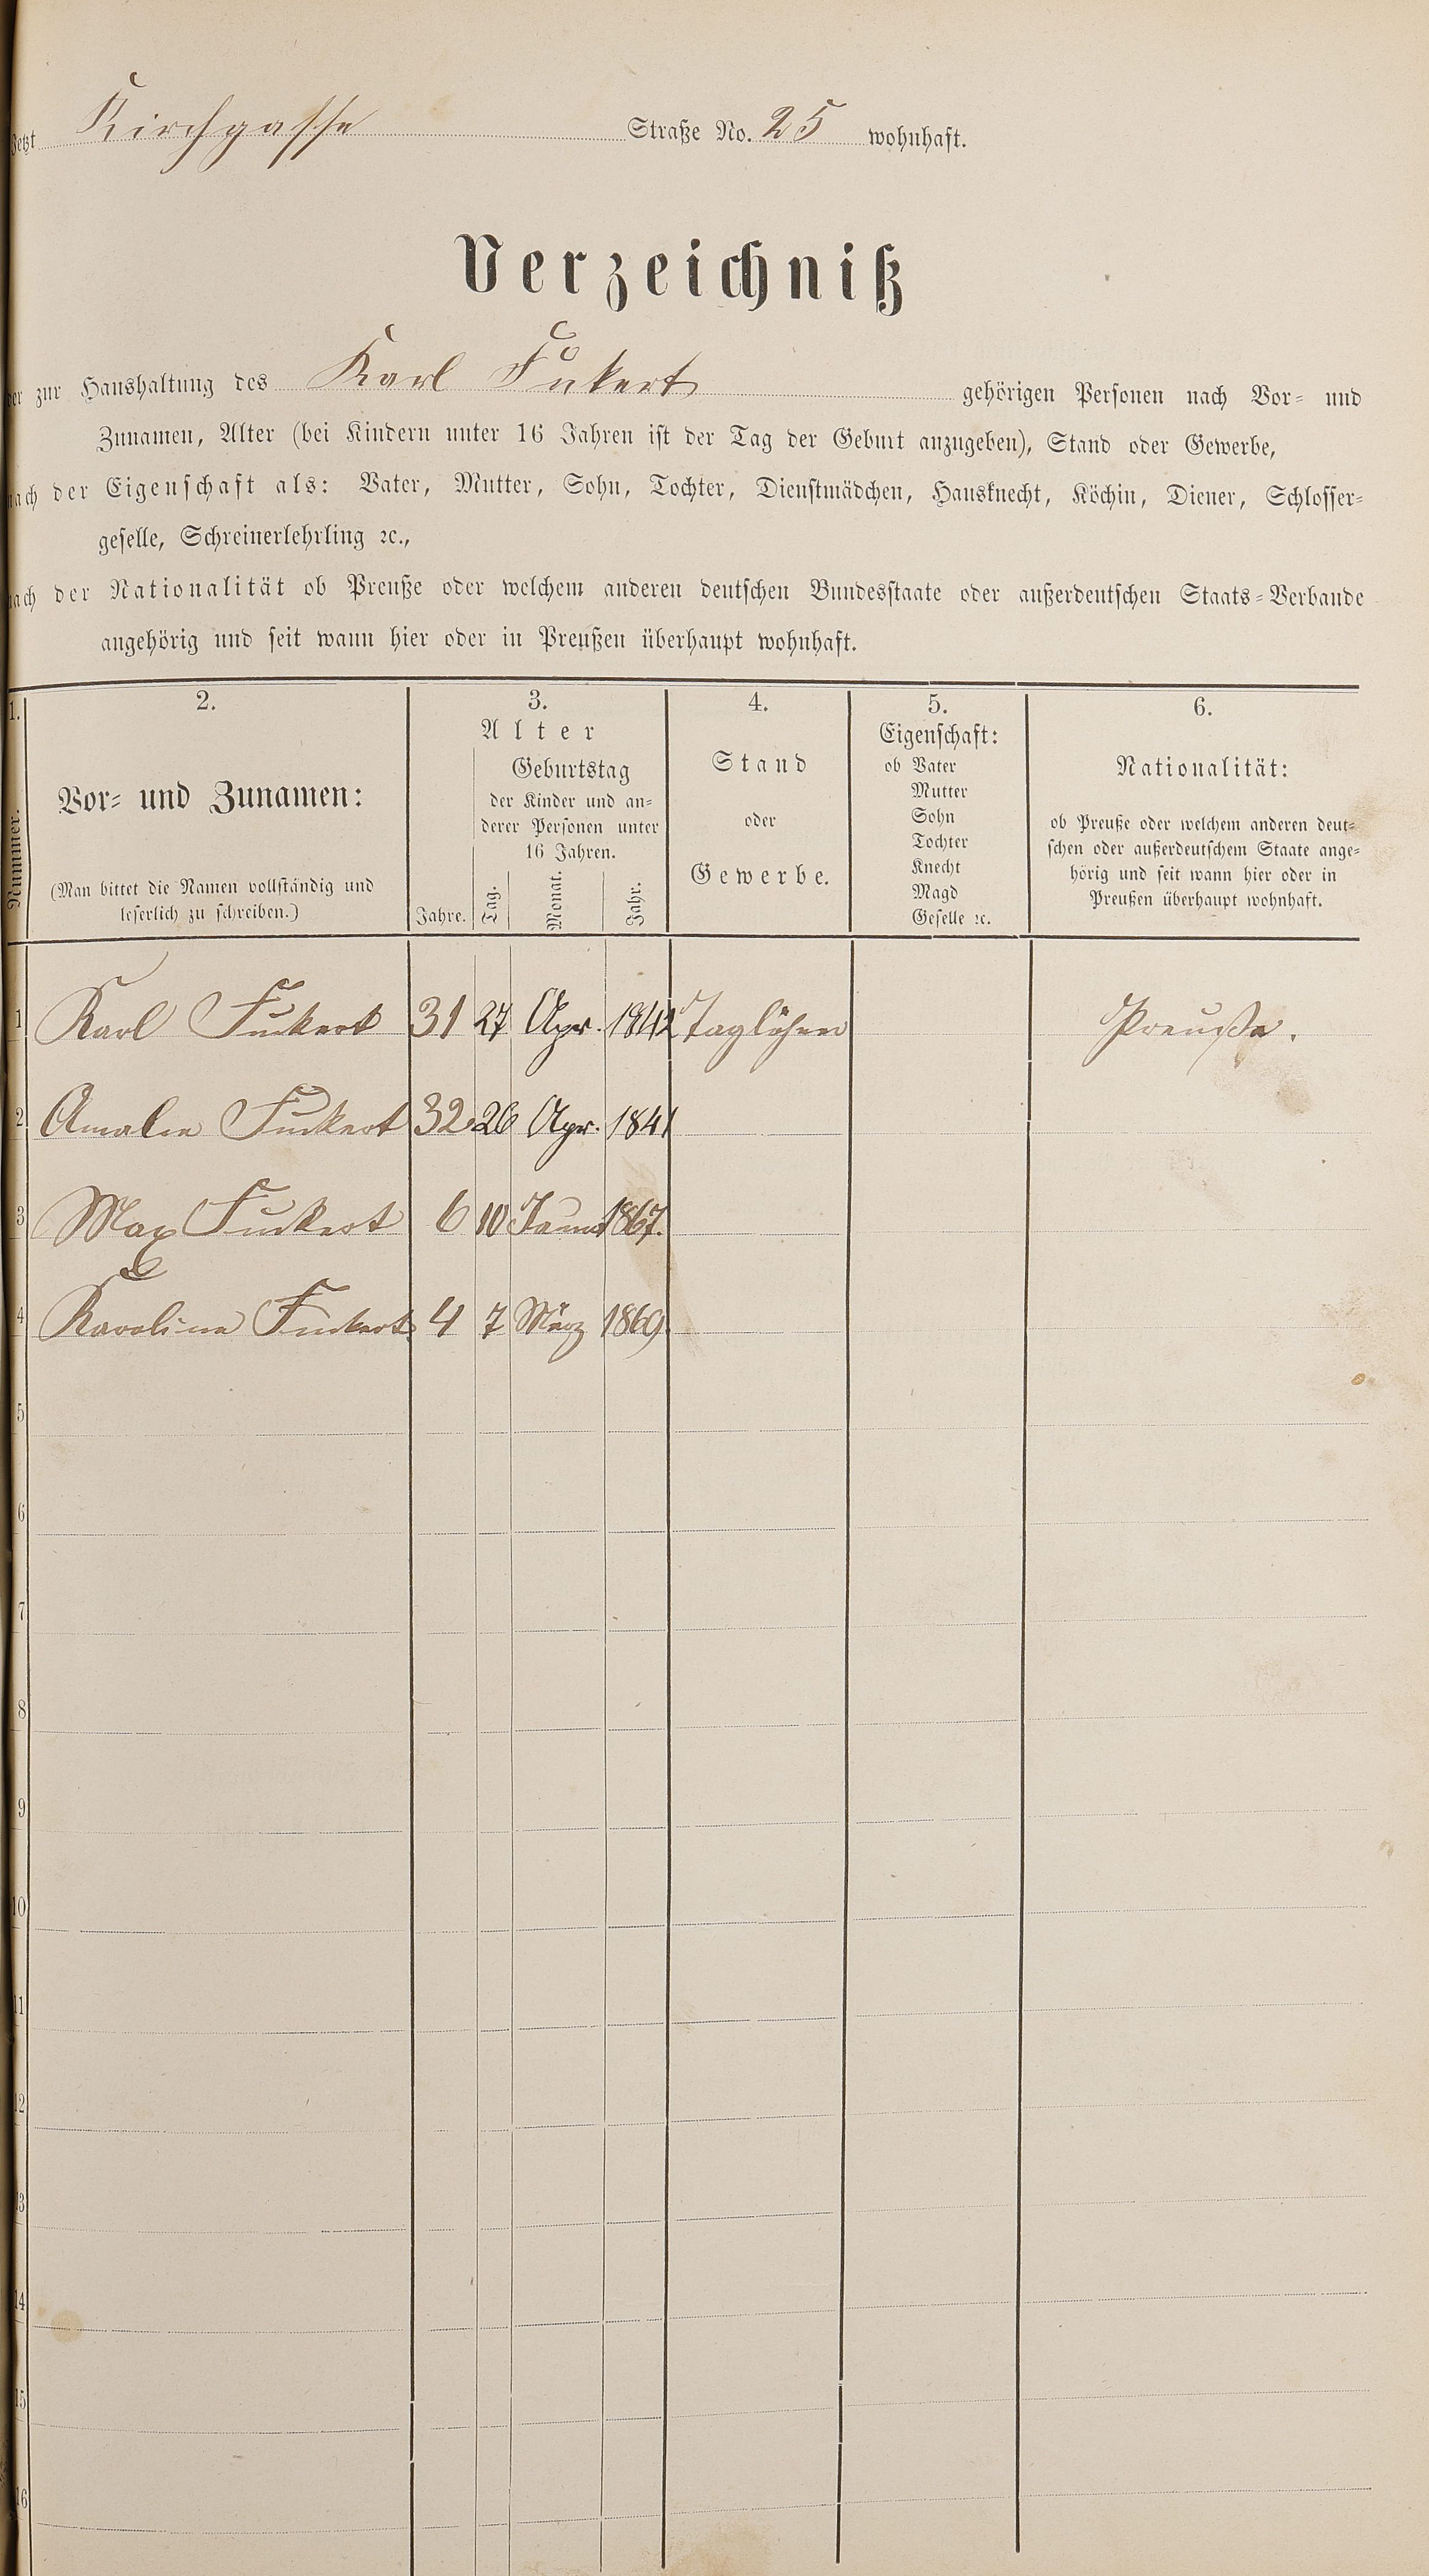 Jetzt Kirchgasse Straße No. 25 wohnhaft.
Verzeichniß
der zur Haushaltung des Karl Fukert gehörigen Personen nach Vor- und
Zunamen, Alter (bei Kindern unter 16 Jahren ist der Tag der Geburt anzugeben), Stand oder Gewerbe,
nach der Eigenschaft als: Vater, Mutter, Sohn, Tochter, Dienstmädchen, Hausknecht, Köchin, Diener, Schlosser-
geselle, Schreinerlehrling ꝛc.,
nach der Nationalität ob Preuße oder welchem anderen deutschen Bundesstaate oder außerdeutschen Staats-Verbande
angehörig und seit wann hier oder in Preußen überhaupt wohnhaft.
1.
Nummer.
2.
Vor- und Zunamen:
(Man bittet die Namen vollständig und
leserlich zu schreiben.)
3.
Alter
Jahre.
Geburtstag
der Kinder und an-
derer Personen unter
16 Jahren.
Tag. Monat. Jahr.
4.
Stand
oder
Gewerbe.
5.
Eigenschaft:
ob Vater
Mutter
Sohn
Tochter
Knecht
Magd
Geselle ꝛc.
6.
Nationalität:
ob Preuße oder welchem anderen deut-
schen oder außerdeutschem Staate ange-
hörig und seit wann hier oder in
Preußen überhaupt wohnhaft.
1 Karl Fuckert 31 27 Apr. 1842 Taglöhner Preuße.
2 Amalie Fuckert 32 26 Apr. 1841
3 Max Fuckert 6 10 1867.
4 Karoline Fuckert 4 7 März 1869
5
6
7
8
9
10
11
12
13
14
15
16